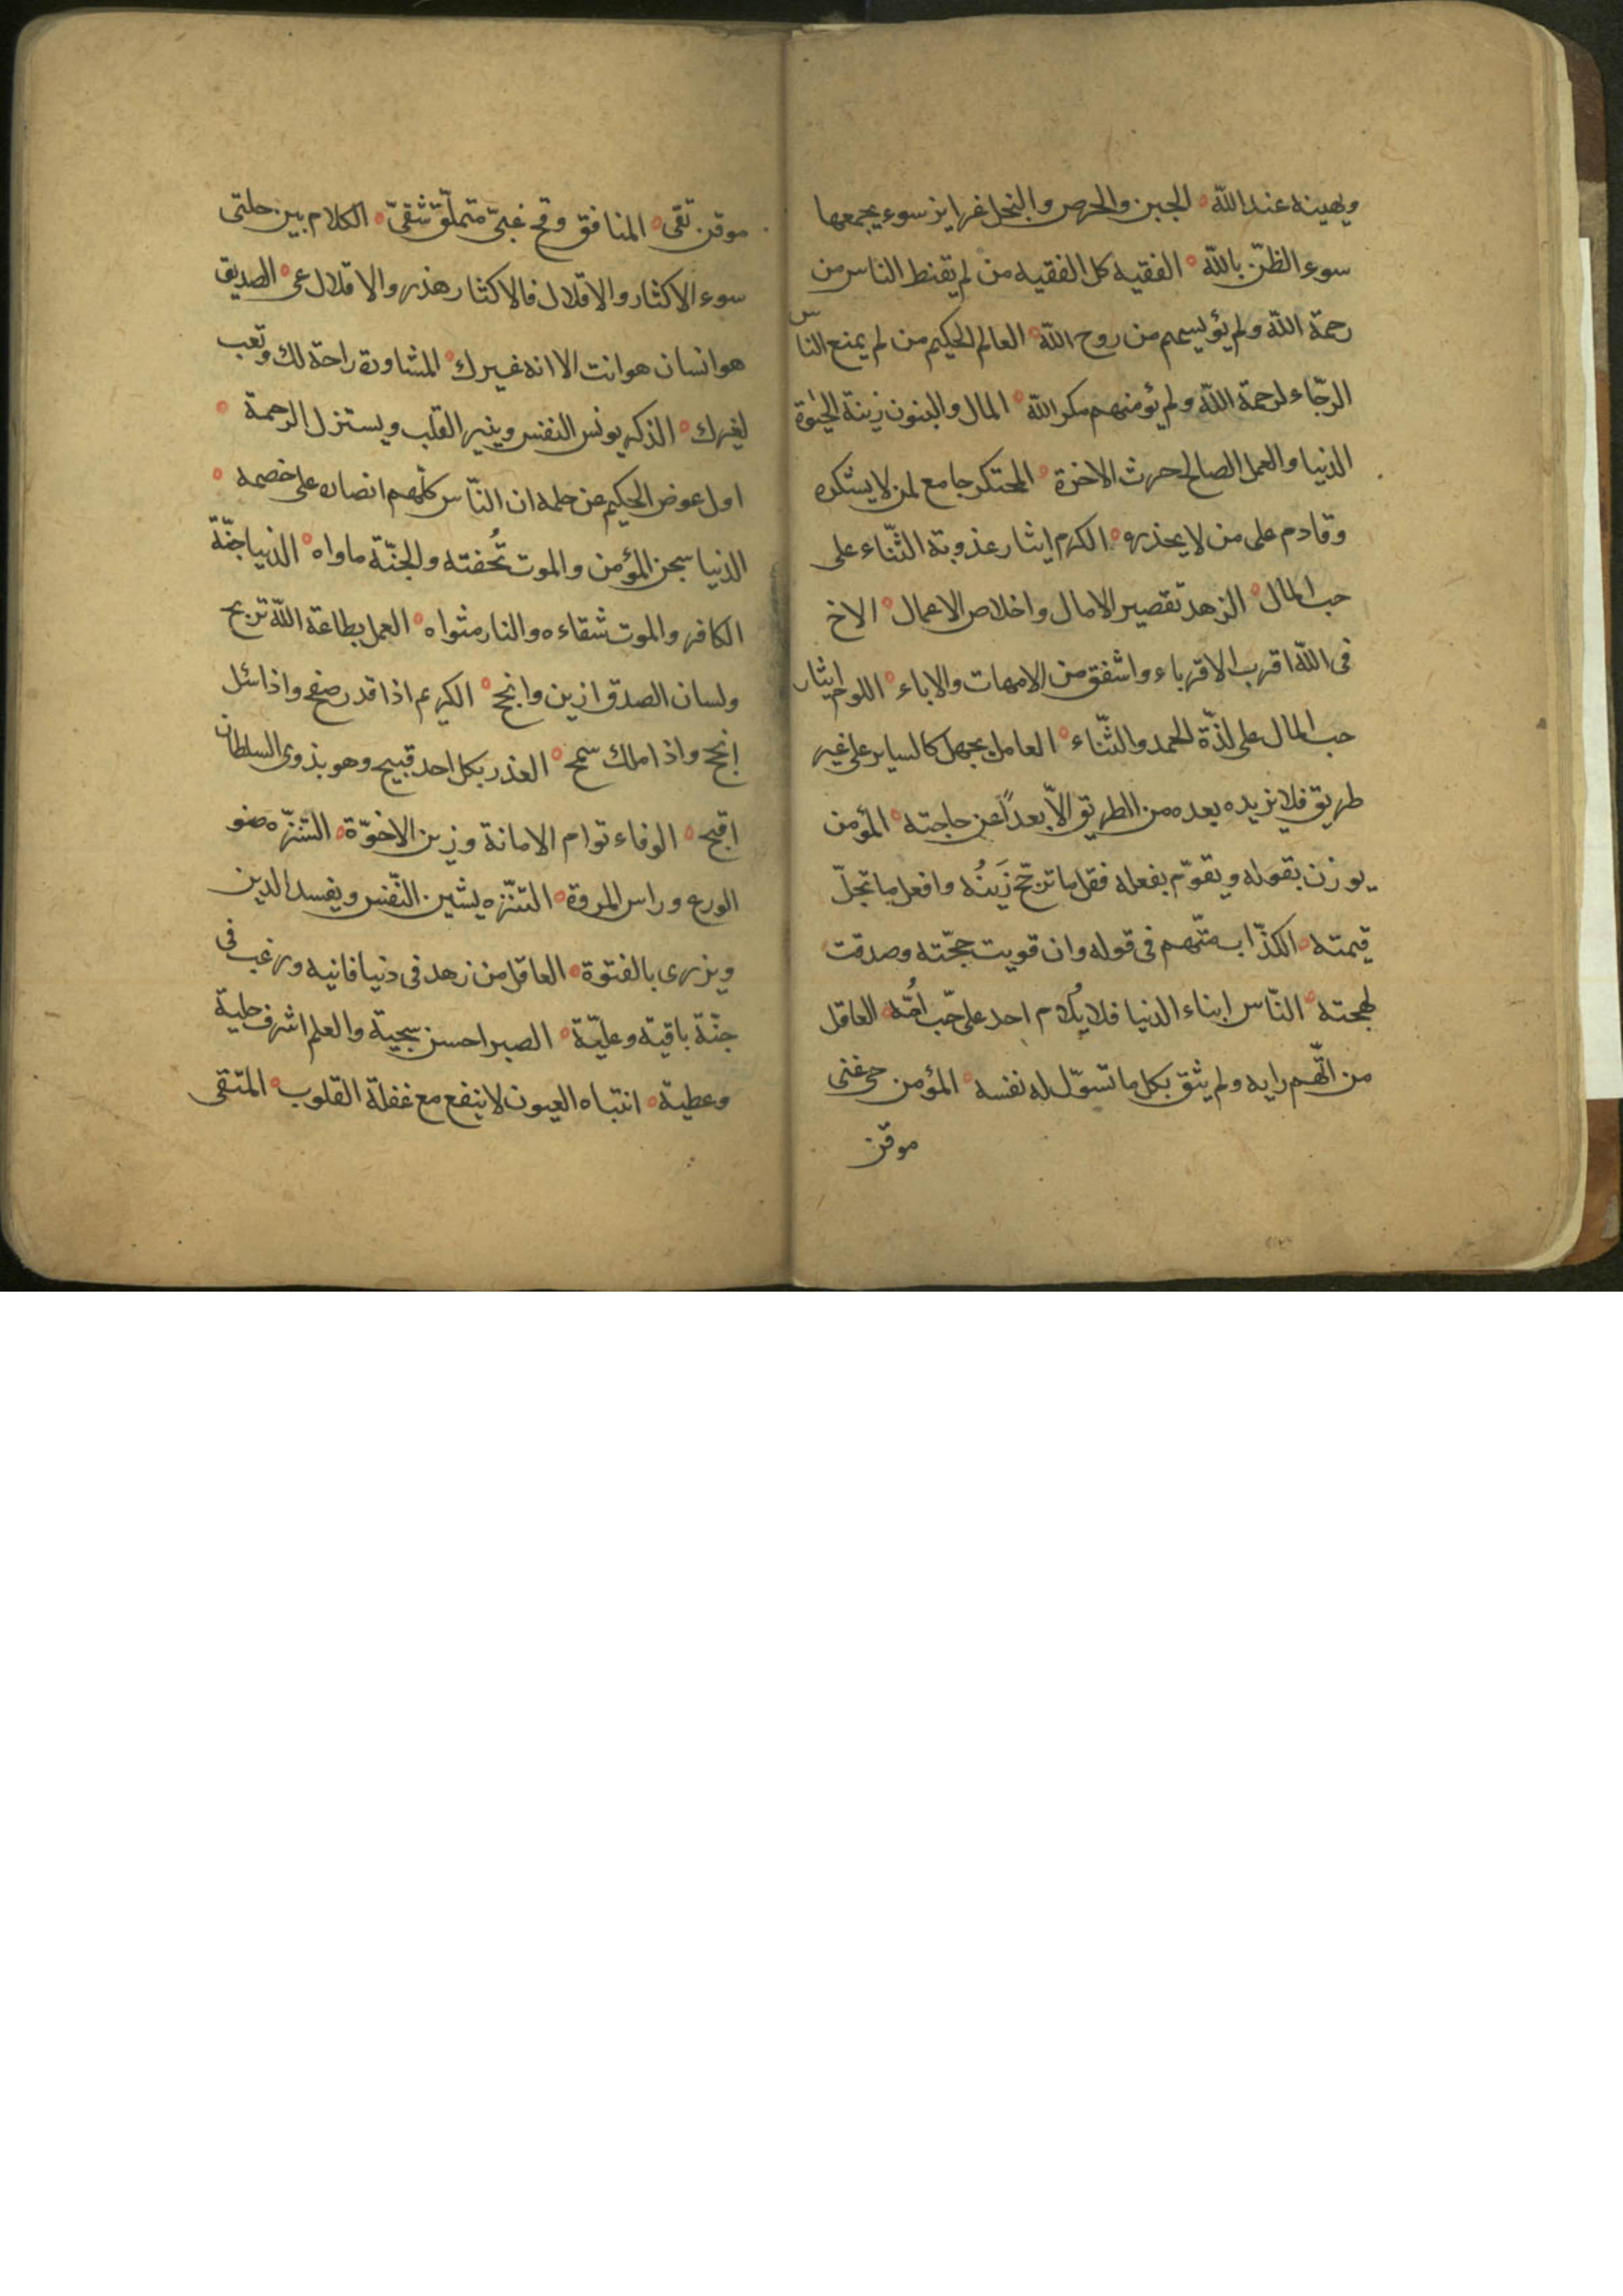 ويهينه عند الله ه الجبن والحرص والبخل غرايز سوء يجمعها
سوء الظنّ بالله ه الفقيه كل الفقيه من لم يقنط الناس من
رحمة الله ولم يؤيسهم من روح الله ه العالم الحكيم من لم يمنع الناس
الرّجاء لرحمة الله ولم يؤمنهم مكر الله ه المال والبنون زينة الحيوة
الدنيا والعمل الصالح حرث الاخرة ه المحتكر جامع لمن لا يشكره
وقادم على من لا يعذره ه الكرم ايثار عذوبة الثّناء على
حب المال ه الزهد تقصير الامال واخلاص الاعمال ه الاخ
فى الله اقرب الاقرباء واشفق من الامهات والاباء ه اللوم ايثار
حب المال على لذّة الحمد والثّناء ه العامل بجهل كالساير على غير
طريق فلا يزيده بعده من الطريق الاّ بعداً عن حاجته ه المؤمن
يوزن بقوله ويقوّم بفعله فقل ما ترجّح زَينُه وافعل ما تجلّ
قيمته ه الكذّاب متّهم فى قوله وان قويت حجّته وصدقت
لهجته ه النّاس ابناء الدنيا فلا يُلام احد على حّب اُمّه ه العاقل
من اتّهم رايه ولم يثق بكل ما تسوّل له نفسه ه المؤمن حى غنى
موقن
موقن تقى ه المنافق وقح غبىّ متملّق شقىّ ه الكلام بين خلتى
سوء الاكثار والاقلال فالاكثار هذر والاقلال عى ه الصديق
هو انسان هو انت الا انه غيرك ه المشاورة راحة لك وتعب
لغيرك ه الذكر يونس النفس وينير القلب ويستنزل الرحمة ه
اول عوض الحكيم عن حلمه ان النّاس كلّهم انصاره على خصمه ه
الدنيا سجن المؤمن والموت تُحفته والجنّة ماواه ه الدنيا جنّة
الكافر والموت شقاءه والنار مثواه ه العمل بطاعة الله تربح
ولسان الصدق ازين وانجح ه الكريم اذا قدر صفح واذا سئل
انجح واذا ملك سمح ه الغدر بكل احد قبيح وهو بذوى السلطان
اقبح ه الوفاء توام الامانة وزين الاخوّة ه التنزّه صنو
الورع وراس المروة ه التنزّه يشين النّفس ويفسد الدين
ويزرى بالفتوة ه العاقل من زهد فى دنيا فانيه ورغب فى
جنّة باقية وعليّة ه الصبر احسن سجية والعلم اشرف حلية
وعطية ه انتباه العيون لا ينفع مع غفلة القلوب ه المتقى